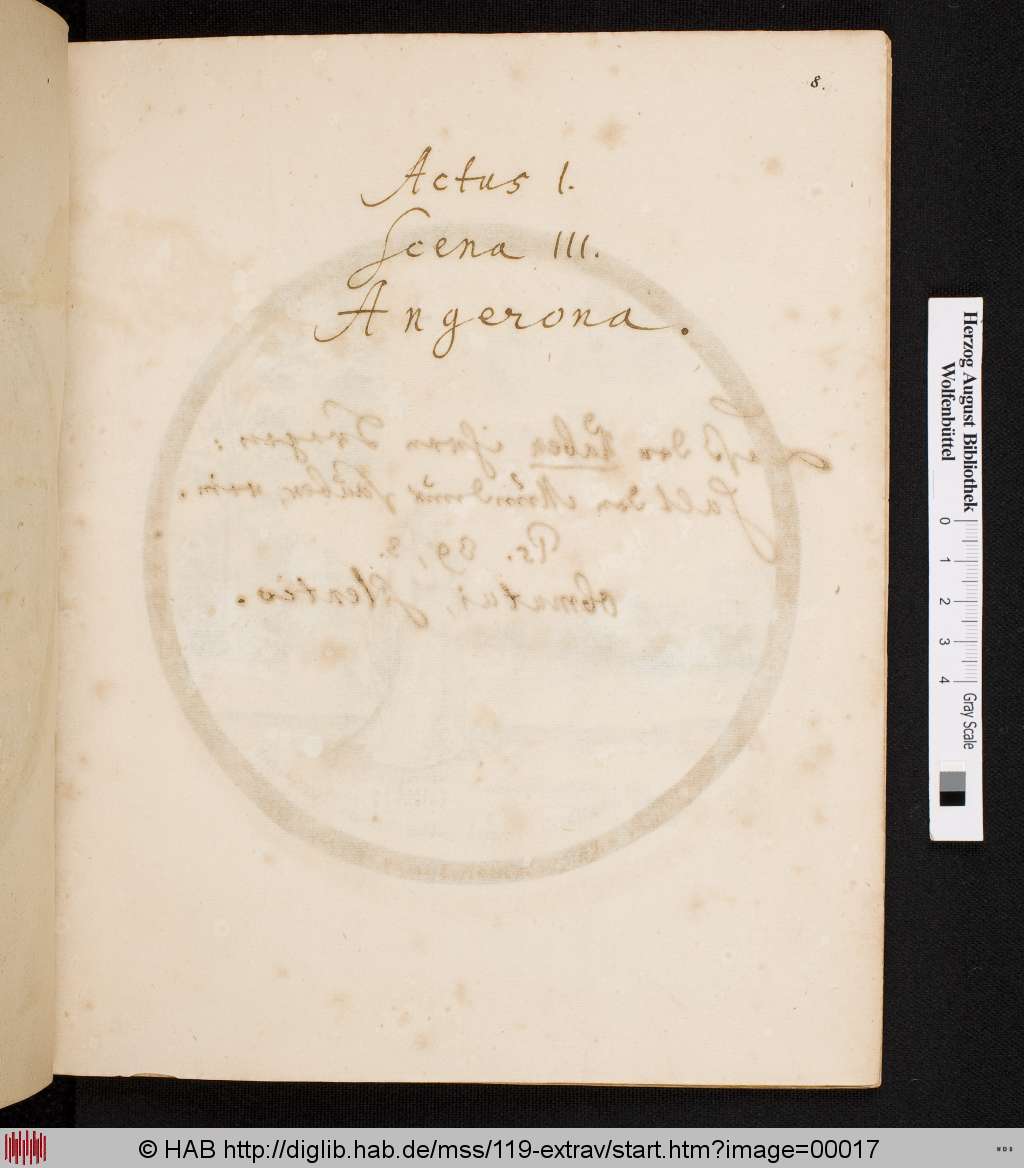 8.
Actus I.
Scena III.
Angerona.
Ps. 39, 3.
obmutui, silentio.
Herzog August Bibliothek
Wolfenbüttel
0 1 2 3 4
Gray Scale
© HAB http://diglib.hab.de/mss/119-extrav/start.htm?image=00017